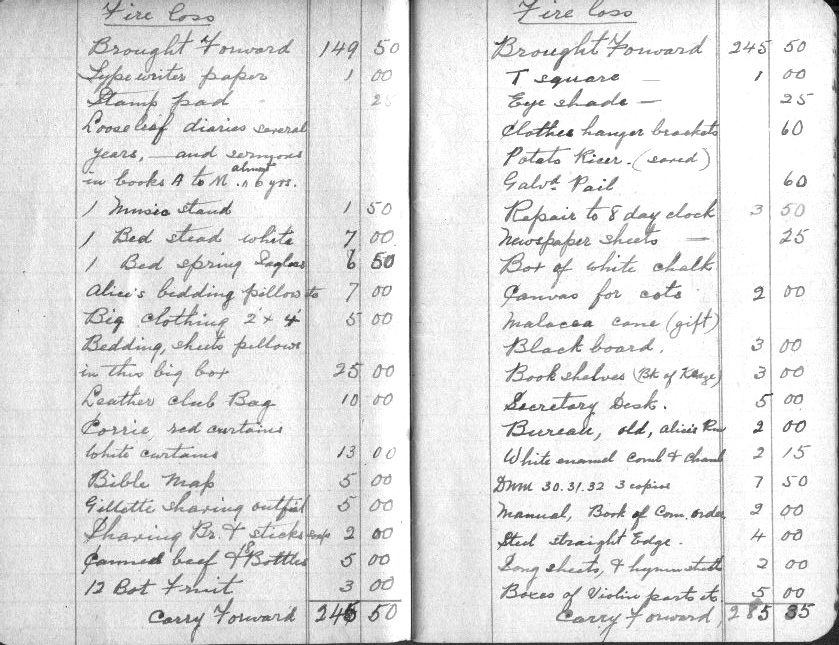 Fire loss
Brought Forward 149 50
Typewriter paper 1 00
Stamp pad 25
Looseleaf diaries several
years, — and sermons
in books A to M almost 6 yrs.
1 Music stand 1 50
1 Bed stead white 7 00
1 Bed spring 6 50
Alice's bedding pillow 7 00
Big clothing 2 x 4 5 00
Bedding, sheets pillows
in this big box 25 00
Leather club Bag 10 00
Corrie, red curtains
White curtains 13 00
Bible Map 5 00
Gillette shaving outfit 5 00
Shaving Br. & sticks 2 00
Canned beef & Bottles 5 00
12 Bot Fruit 3 00
Carry Forward 245 50
Fire loss
Brought Forward 245 50
T square — 1 00
Eye shade — 25
Clothes hanger brackets 60
Potato Ricer. (saved)
Galvd. Pail 60
Repair to 8 day clock 3 50
Newspaper sheets — 25
Box of white chalk
Canvas for cots 2 00
Malacca cane (gift)
Black board. 3 00
Book shelves (Bk of ) 3 00
Secretary Desk. 5 00
Bureau, old, Alice's Rm 2 00
White enamel Comb & 2 15
DNM 30.31.32 3 copies 7 50
Manual, Book of Com. order 2 00
Steel straight Edge. 4 00
Song sheets, & hymn sheets 2 00
Boxes of Violin parts etc 5 00
Carry Forward, 285 35